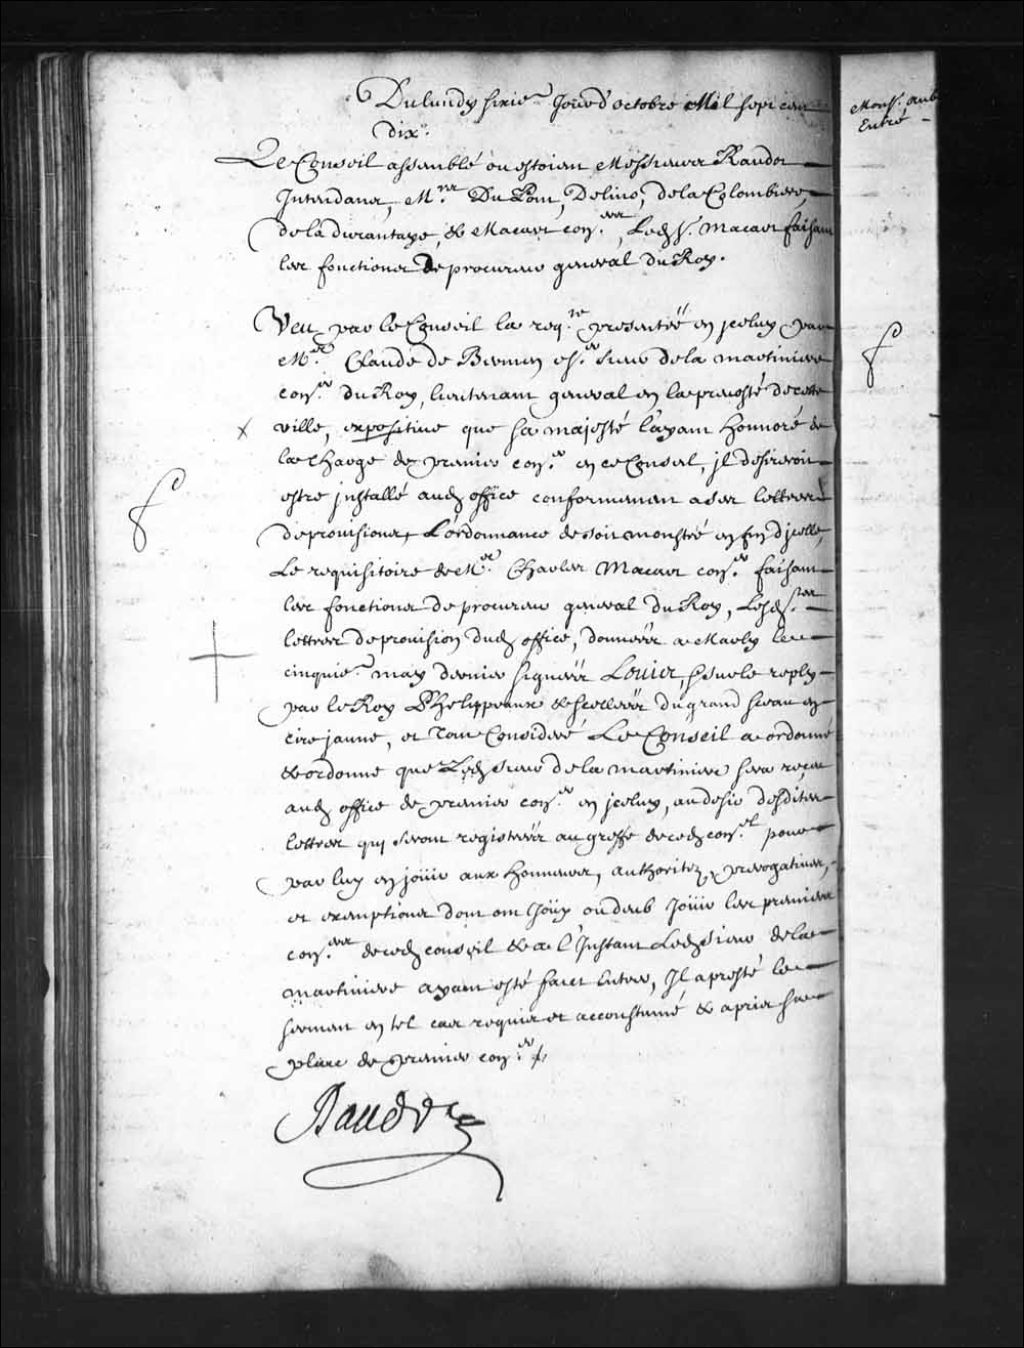 Du lundy sixie.e Jour d'octobre Mil sept cent
dix.
Le Conseil assemblé ou estoient Messieurs Raudot
Intendant, M.rs Du Pont, Delino, de la Colombiere,
de la durantaye, & Macart con.ers, Led. S.r Macart faisant
les fonctions de procureur general du Roy.
Veu par le Conseil la req.te presentéé en jceluy par
M.e Claude de Bermen es.er sieur de la martiniere
con.er du Roy, lieutenant general en la prevosté de cette
ville, expositive que sa majesté l'ayant honnoré de
la charge de premier con.er en ce Conseil, jl desireroit
estre jnstallé aud. office conformement a ses lettres
de provisions, L'ordonnance de soit monstré en fin d'jcelle,
Le requisitoire de M.e Charles Macart con.er faisant
les fonctions de procureur general du Roy, Lesd.tes
lettres de provision dud. office, donnéés a Marly le
cinquie.e may dernier signéés Louis, & sur le reply
par le Roy Phelippeaux & scelléés du grand sceau en
cire jaune, et Tout Consideré Le Conseil a ordonné
& ordonne que Led. sieur de la martiniere sera reçeu
aud. office de premier con.er en jceluy, au desir desdites
lettres qui seront registréés au greffe de ced. con.el pour
par luy en joüir aux honneurs, authoritez, prerogatives,
et exemptions dont ont joüy ou deub joüir les premiers
con.ers de ced. conseil & a l'Instant Led. Sieur de la
martiniere ayant esté fait Entrer, Il a presté le
serment en tel cas requis et accoustumé & a pris sa
place de premier con.er
Raudot
Mons.r aub
Entré